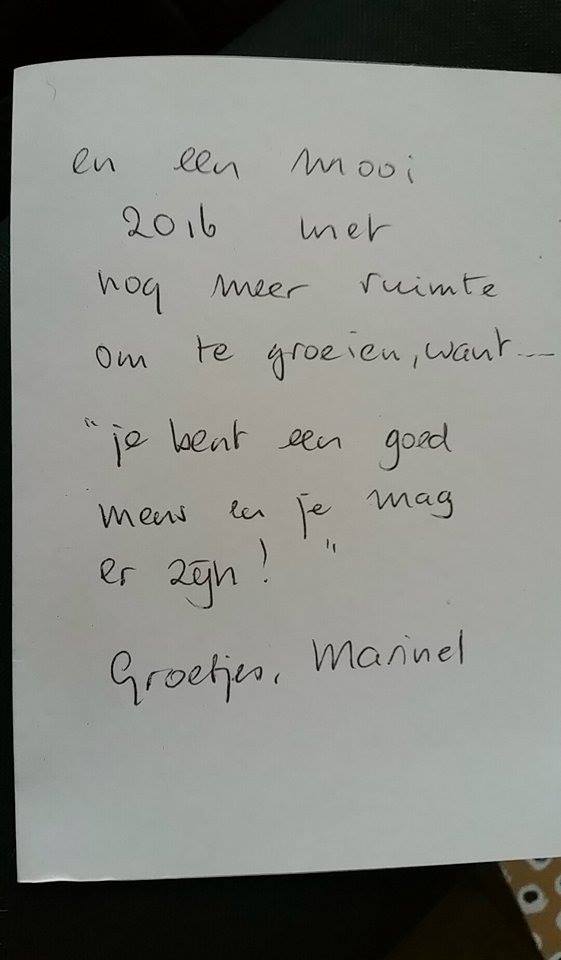 en een mooi
2016 met
nog meer ruimte
om te groeien, want...
"je bent een goed
mens en je mag
er zijn!"
Groetjes, Marinel